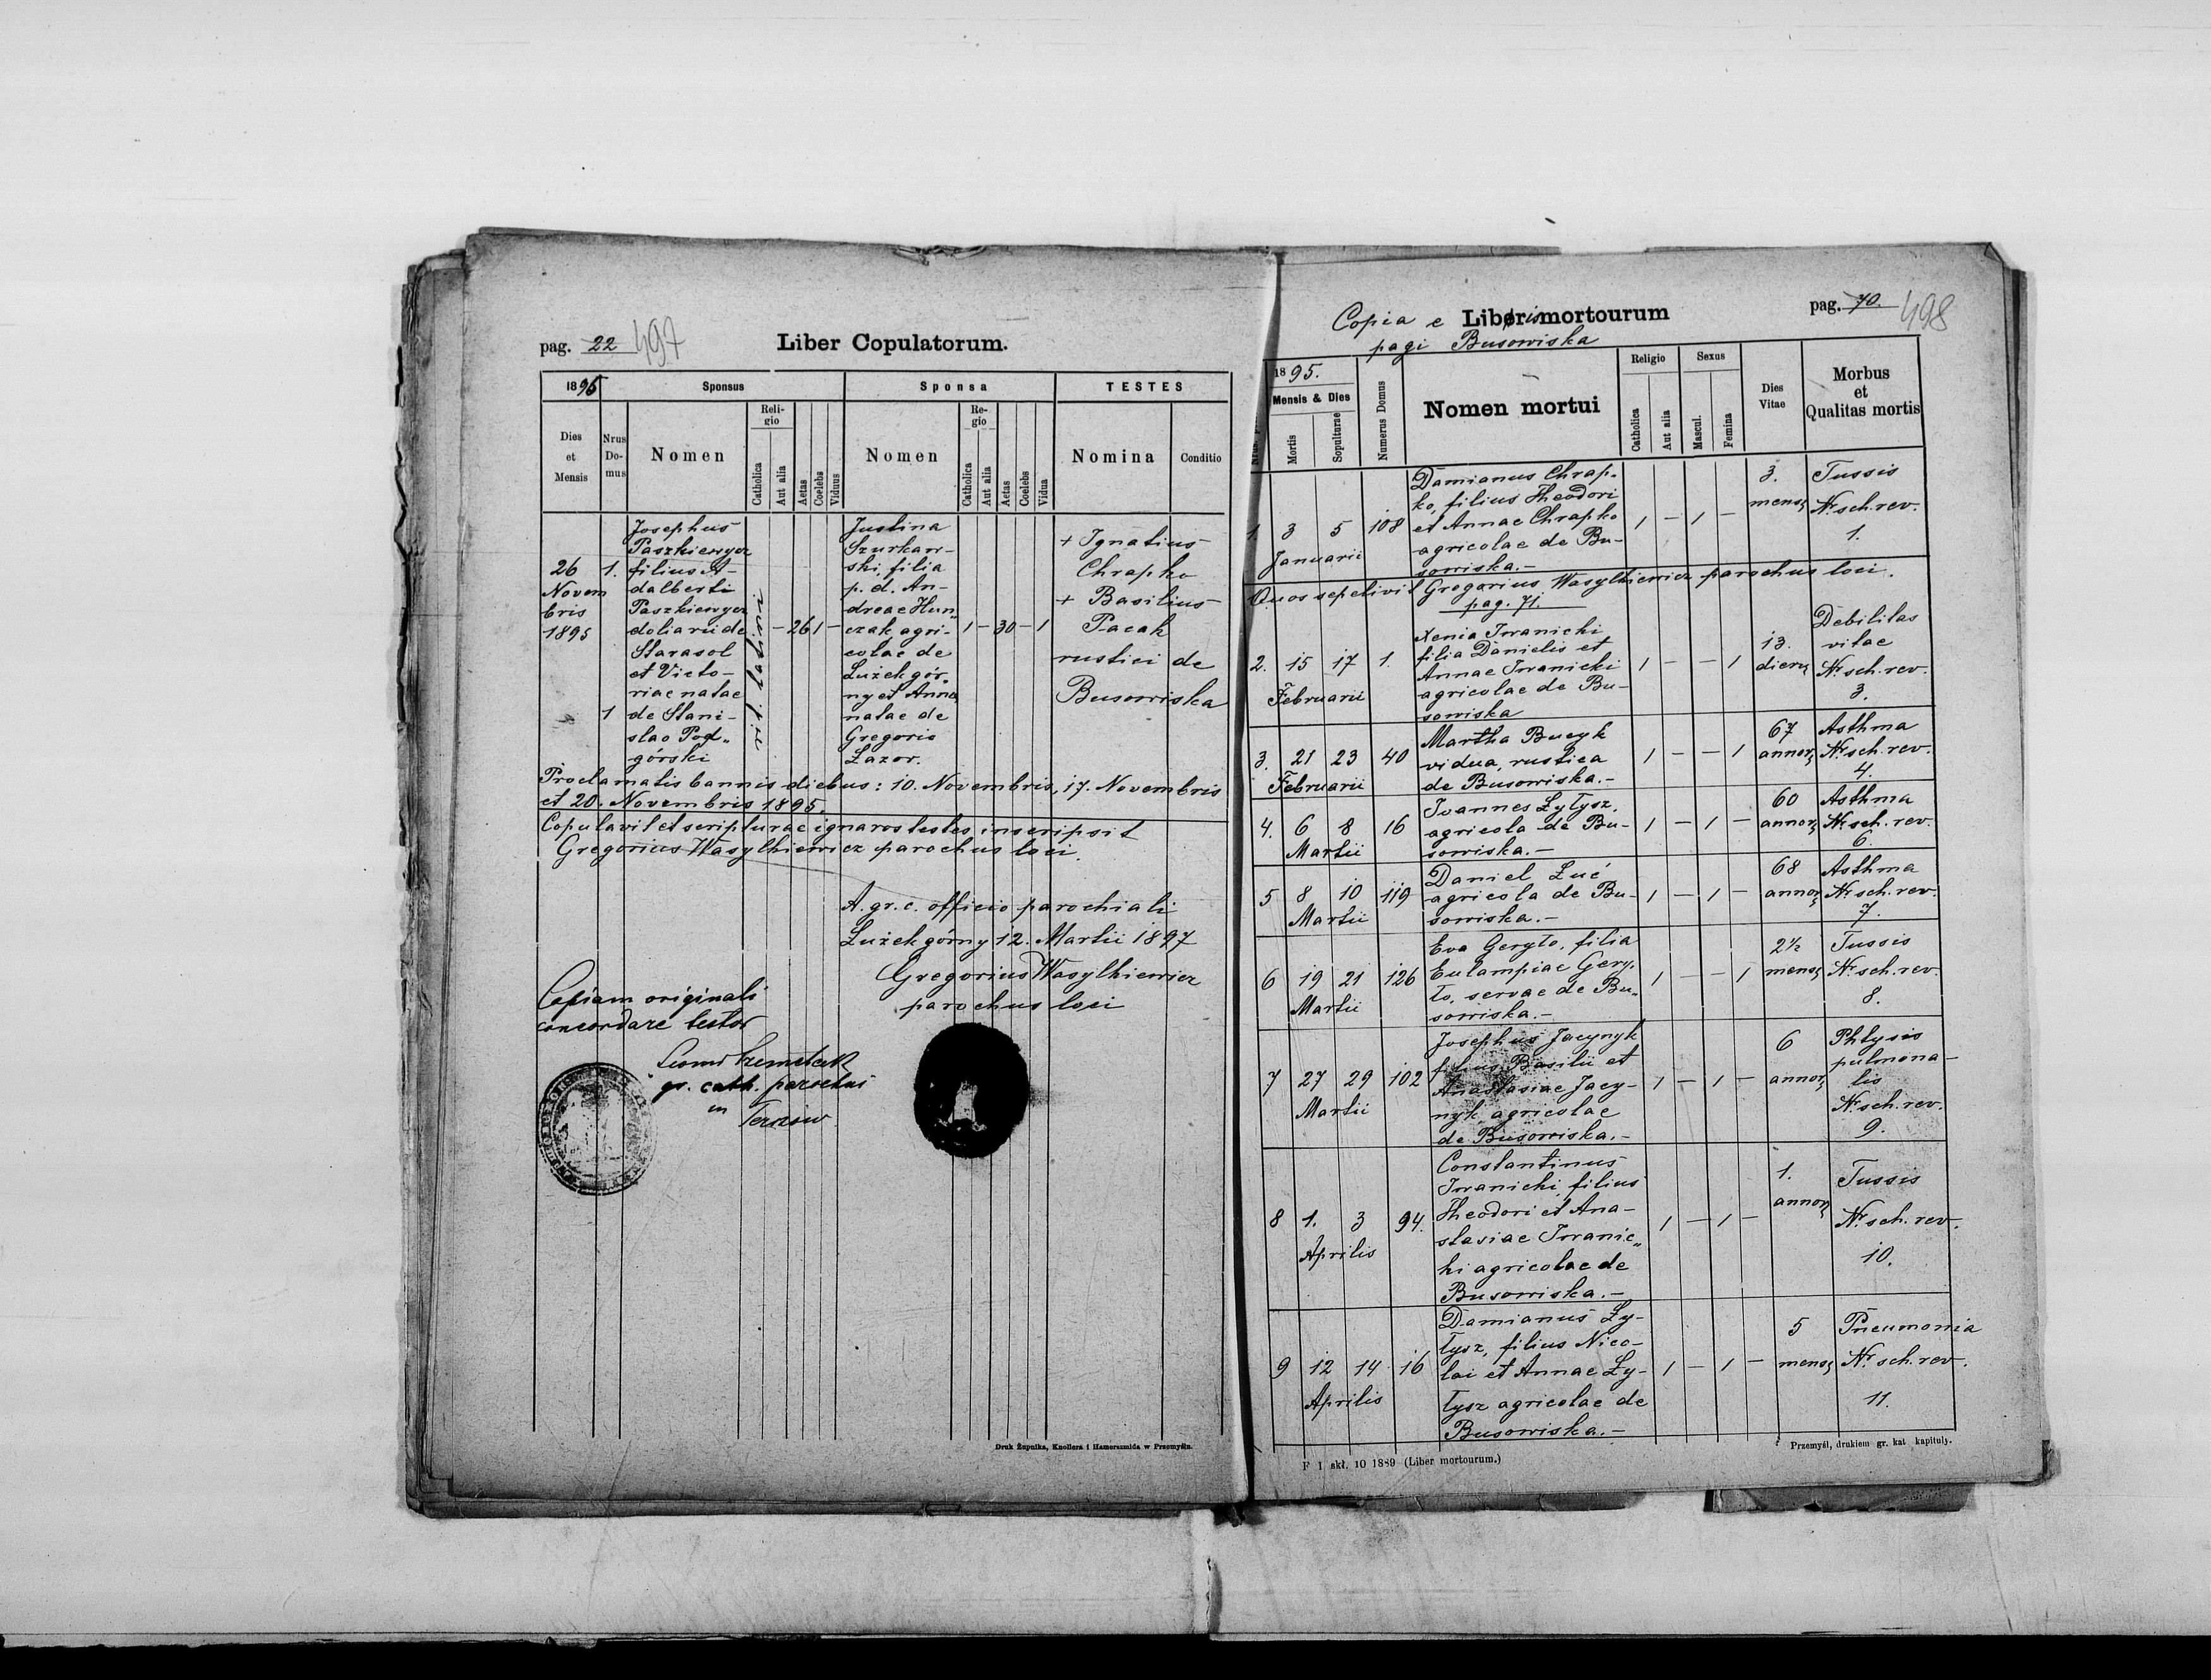 pag. 22 497
Liber Copulatorum.
1895
Sponsus
Sponsa
TESTES
Dies et Mensis
Nrus Domus
Nomen
Religio
Catholica
Aut alia
Aetas
Coelebs
Viduus
Nomen
Religio
Catholica
Aut alia
Aetas
Coelebs
Vidua
Nomina
Conditio
26
Novem
bris
1895
1.
1
Josephus
Paszkiewycz
filius A-
dalberti
Paszkiewycz
doliarii de
Starasol
et Victo-
riae natae
de Stani-
slao Pod„
górski
- 26 1 -
Justina
Szurkaw-
ski, filia
p. d. An-
dreae Hun„
czak agri-
colae de
Łużek gór„
ny et Anna
natae de
Gregorio
Łazor.
1 - 30 - 1
+ Ignatius
Chrapko
+ Basilius
Pacak
rustici de
Busowiska
Proclamatis bannis diebus: 10. Novembris, 17. Novembris
et 20. Novembris 1895.
Copulavit et scripturae ignaros testes inscripsit
Gregorius Wasylkiewicz parochus loci.
A. gr. c. officio parochiali
Łużek górny 12. Martii 1897
Gregorius Wasylkiewicz
parochus loci
Copiam originali
concordare testor
gr. cath. parochus
in
Druk Żupnika, Knollera i Hamerszmida w Przemyślu.
Copia e Libris mortourum
pagi Busowiska
pag. 70. 498
1895.
Mensis & Dies
Mortis
Sepulturae
Numerus Domus
Nomen mortui
Religio
Catholica
Aut alia
Sexus
Mascul.
Femina
Dies Vitae
Morbus
et
Qualitas mortis
1. 3 5 108
Januarii
Damianus Chrap-
ko, filius Theodori
et Annae Chrapko
agricolae de Bu-
sowiska.-
1 - 1 -
3.
mens
Tussis
Nr. sch. rev.
1.
Quos sepelivit Gregorius Wasylkiewicz parochus loci.
pag. 71.
2. 15 17 1.
Februarii
Xenia Iwanicki
filia Danielis et
Annae Iwanicki
agricolae de Bu-
sowiska
1 - - 1
13.
dierum
Debilitas
vitae
Nr. sch. rev.
3.
3. 21 23 40
Februarii
Martha Bucyk
vidua, rustica
de Busowiska.-
1 - - 1
67
annor
Asthma
Nr. sch. rev.
4.
4. 6 8 16
Martii
Ioannes Łytysz,
agricola de Bu-
sowiska.-
1 - 1 -
60
annor
Asthma
Nr. sch. rev.
6.
5 8 10 119
Martii
Daniel Łuć
agricola de Bu-
sowiska.-
1 - 1 -
68
annor
Asthma
Nr. sch. rev.
7.
6 19 21 126
Martii
Eva Geryło, filia
Eulampiae Gery„
ło, servae de Bu„
sowiska.-
1 - - 1
2½
mens
Tussis
Nr. sch. rev.
8.
7 27 29 102
Martii
Josephus Jacynyk
filius Basilii et
Anastasiae Jacy-
nyk agricolae
de Busowiska.-
1 - 1 -
6
annor
Phtysis
pulmona-
lis
Nr. sch. rev.
9.
8 1. 3 94.
Aprilis
Constantinus
Iwanicki, filius
Theodori et Ana-
stasiae Iwanic„
ki agricolae de
Busowiska.-
1 - 1 -
1.
annor
Tussis
Nr. sch. rev.
10.
9 12 14 16
Aprilis
Damianus Ły-
tysz, filius Nico-
lai et Annae Ły-
tysz agricolae de
Busowiska.-
1 - 1 -
5
mens
Pneumonia
Nr. sch. rev.
11.
F 1 skł. 10 1889 (Liber mortourum.)
Przemyśl, drukiem gr. kat kapituły.